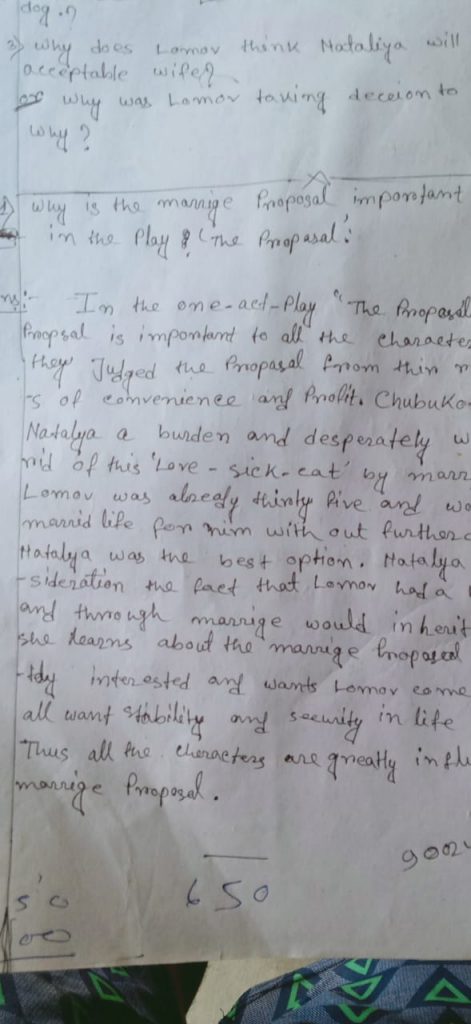 dog.?
3) Why does Lomov think Nataliya will
acceptable wife?
or Why was Lomov taking deceion to
why?
1) Why is the marrige Proposal imporotant
in the Play & ('The Proopasal'.
Ans:- In the one-act-Play "The Proposal
Proopsal is important to all the character
they Judged the Proopasal from thin
-s of convenience and Profit. Chubuko-
Natalya a burden and desperately w
rid of this 'Love-sick-cat' by marr
Lomov was already thirty five and
married life for him with out further
Natalya was the best option. Natalya
-sideration the fact that Lomov had a
and through marrige would inherit
she learns about the marrige Proposed
-tdy interested and wants Lomov come
all want stability and security in life
Thus all the characters are greatly infl
marrige Proposal.
9002
650
50
00